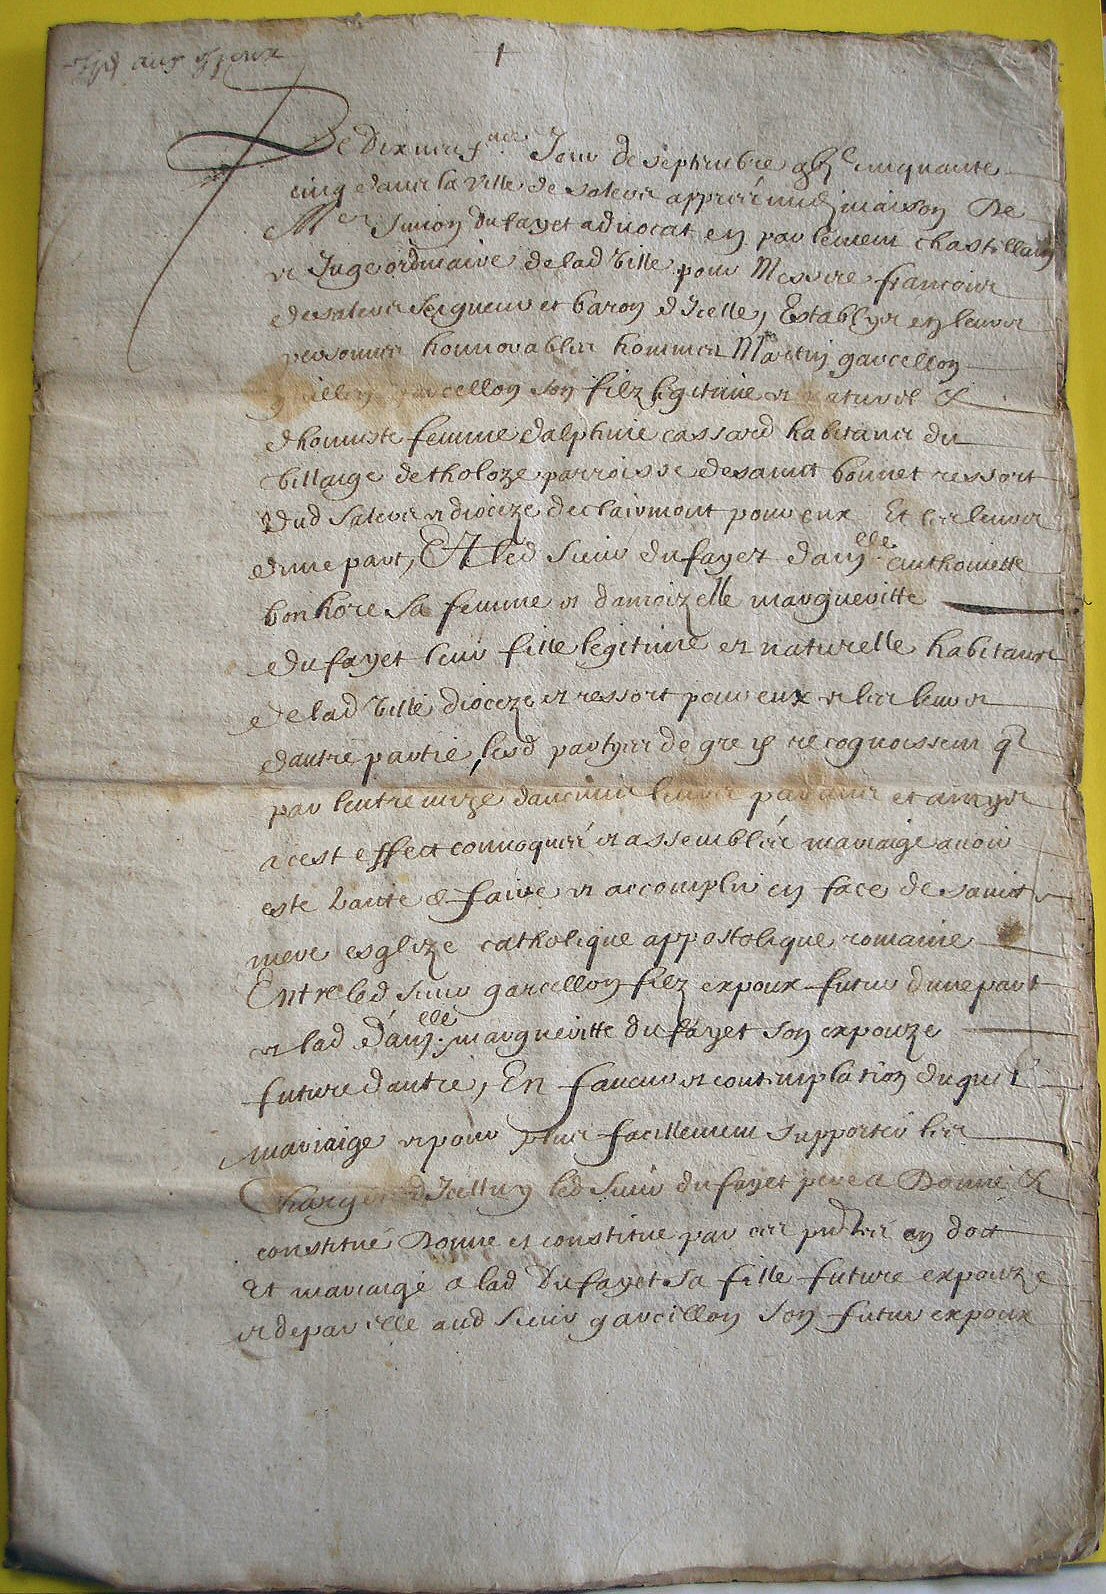 1
Le dixneuf.me Jour de septembre cinquante
cinq dans la ville de salers appres midy maison De
Me Simon dufayet advocat en parlement chastellain
et Juge ordinaire de lad ville pour Messire francois
de salers seigneur et baron d'Icelle, Establys en leurs
personnes honnorables hommes Martin garcellon
garcellon son filz legitime et naturel &
dhonneste femme dalphine cassard habitans du
villaige de tholoze parroisse de sainct bonnet ressort
dud salers et dioceze de clairmont pour eux Et les leurs
dune part, Et led sieur dufayet dam.lle anthoniette
bonhore sa femme et damoizelle margueritte
dufayet leur fille legitime et naturelle habitans
de lad ville dioceze et ressort pour eux et les leurs
dautre partie, lesd partyes de gre recognoissent q
par lentremize daucuns leurs parans et amys
a cest effect convoqués et assemblés mariaige avoir
este traite & faire et accomplir en face de saincte
mere esglize catholique appostolique romaine
Entre led sieur garcellon filz expoux futur dune part
et lad dam.lle margueritte du fayet son expouze
future dautre, En faveur et contemplation duquel
mariaige et pour plus facillement supporter les
Charges dIcelluy led sieur dufayet pere a Donné &
constitué Donne et constitue par ces pntes en dott
Et mariaige a lad Dufayet sa fille future expouze
et depar elle aud sieur garcellon son futur expoux